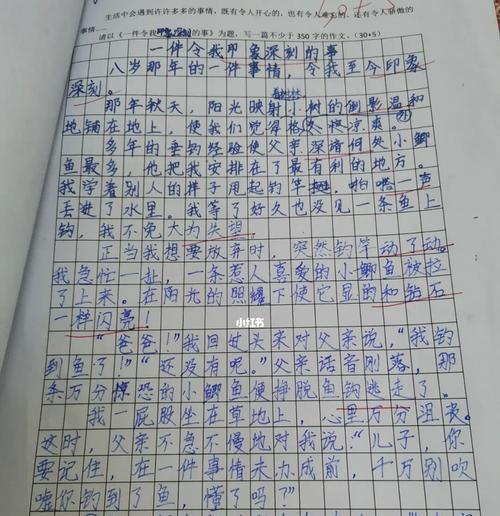 生活中会遇到许许多多的事情，既有令人开心的，也有令人难忘的，还有令人骄傲的
事情……
请以《一件令我印象深刻的事》为题，写一篇不少于350字的作文。(30+5)
一件令我印象深刻的事
八岁那年的一件事情，令我至今印象
深刻。
那年秋天，阳光映射着树林小树的倒影温和
地铺在地上，使我们觉得格外凉爽。
多年的垂钓经验使父亲深谙何处小鲫
鱼最多，他把我安排在了最有利的地方。
我学着别人的样子甩起钓竿，啪嗒一声
丢进了水里。我等了好久也没见一条鱼上
钩，我不免大为失望。
正当我想要放弃时，突然钓竿动了动。
我急忙一扯，一条惹人喜爱的小鲫鱼被拉
了上来。在阳光的照耀下使它显的和钻石
一样闪亮！
小红书
“爸爸！”我回过头来对父亲说，“我钓
到鱼了！”“还没有呢。”父亲话音刚落，那
条万分惊恐的小鲫鱼便挣脱鱼钩逃走了。
我一屁股坐在草地上，心里万分沮丧。
这时，父亲不急不慢地对我说：“儿子，你
要记住，在一件事情未办成前，千万别吹
嘘你钓到了鱼，懂了吗？”